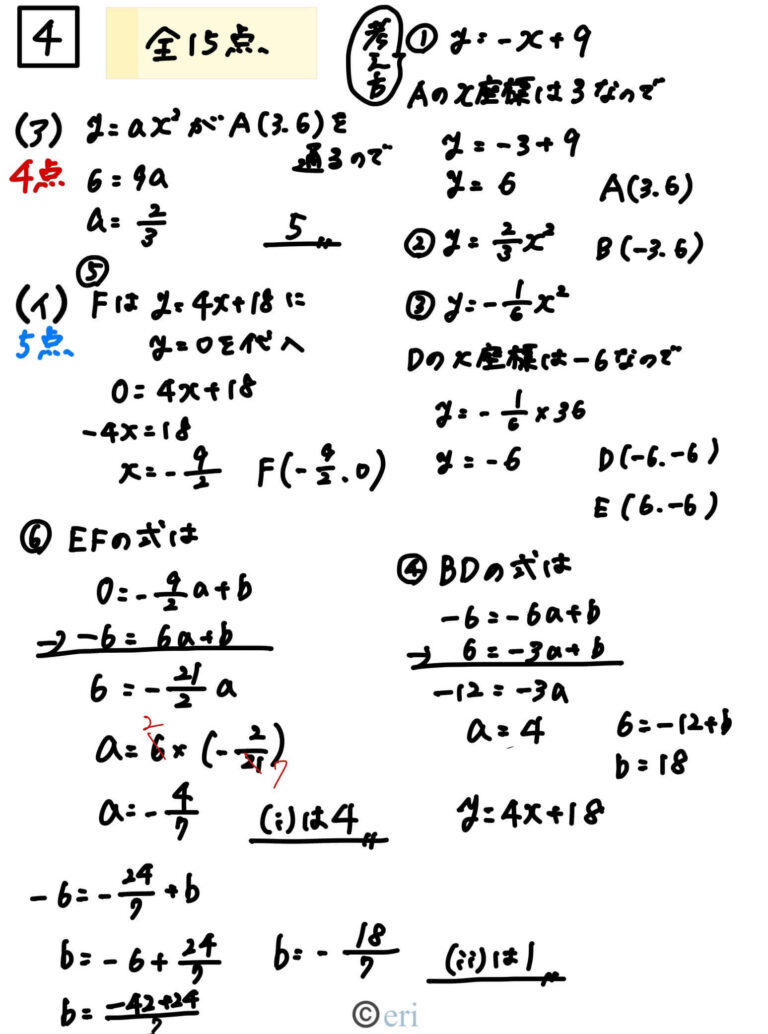 4 全15点
(ア) y=ax²がA(3.6)を
通るので
4点 6=9a
a=2/3
5
⑤
(イ) Fは y=4x+18に
5点 y=0を代入
0=4x+18
-4x=18
x=-9/2 F(-9/2.0)
⑥ EFの式は
0=-9/2a+b
→ -6=6a+b
6=-21/2a
a=6×(-2/21)
2 7
a=-4/7 (i)は4
-6=-24/7+b
b=-6+24/7 b=-18/7 (ii)は1
b=-42+24/7
考え方 ① y=-x+9
Aのx座標は3なので
y=-3+9
y=6 A(3.6)
② y=2/3x² B(-3.6)
③ y=-1/6x²
Dのx座標は-6なので
y=-1/6×36
y=-6 D(-6.-6)
E(6.-6)
④ BDの式は
-6=-6a+b
→ 6=-3a+b
-12=-3a
a=4 6=-12+b
b=18
y=4x+18
©eri